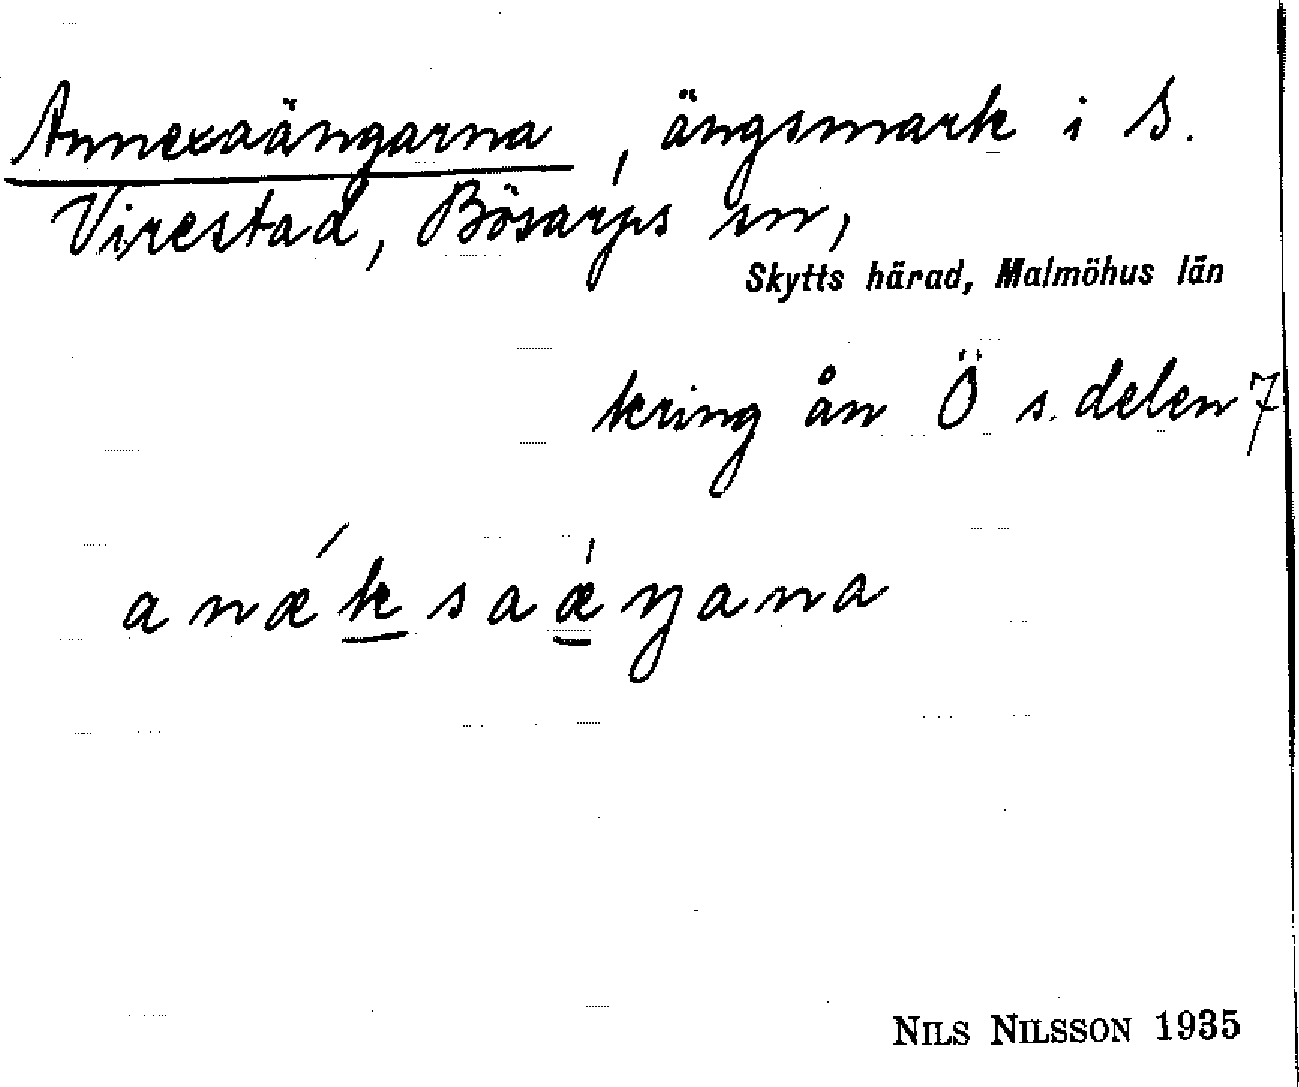 Annexaängarna, ängsmark i S.
Virestad, Bösarps sn,
Skytts härad, Malmöhus län
kring ån Ö s. delen 7
anǽksaǽŋana
NILS NILSSON 1935